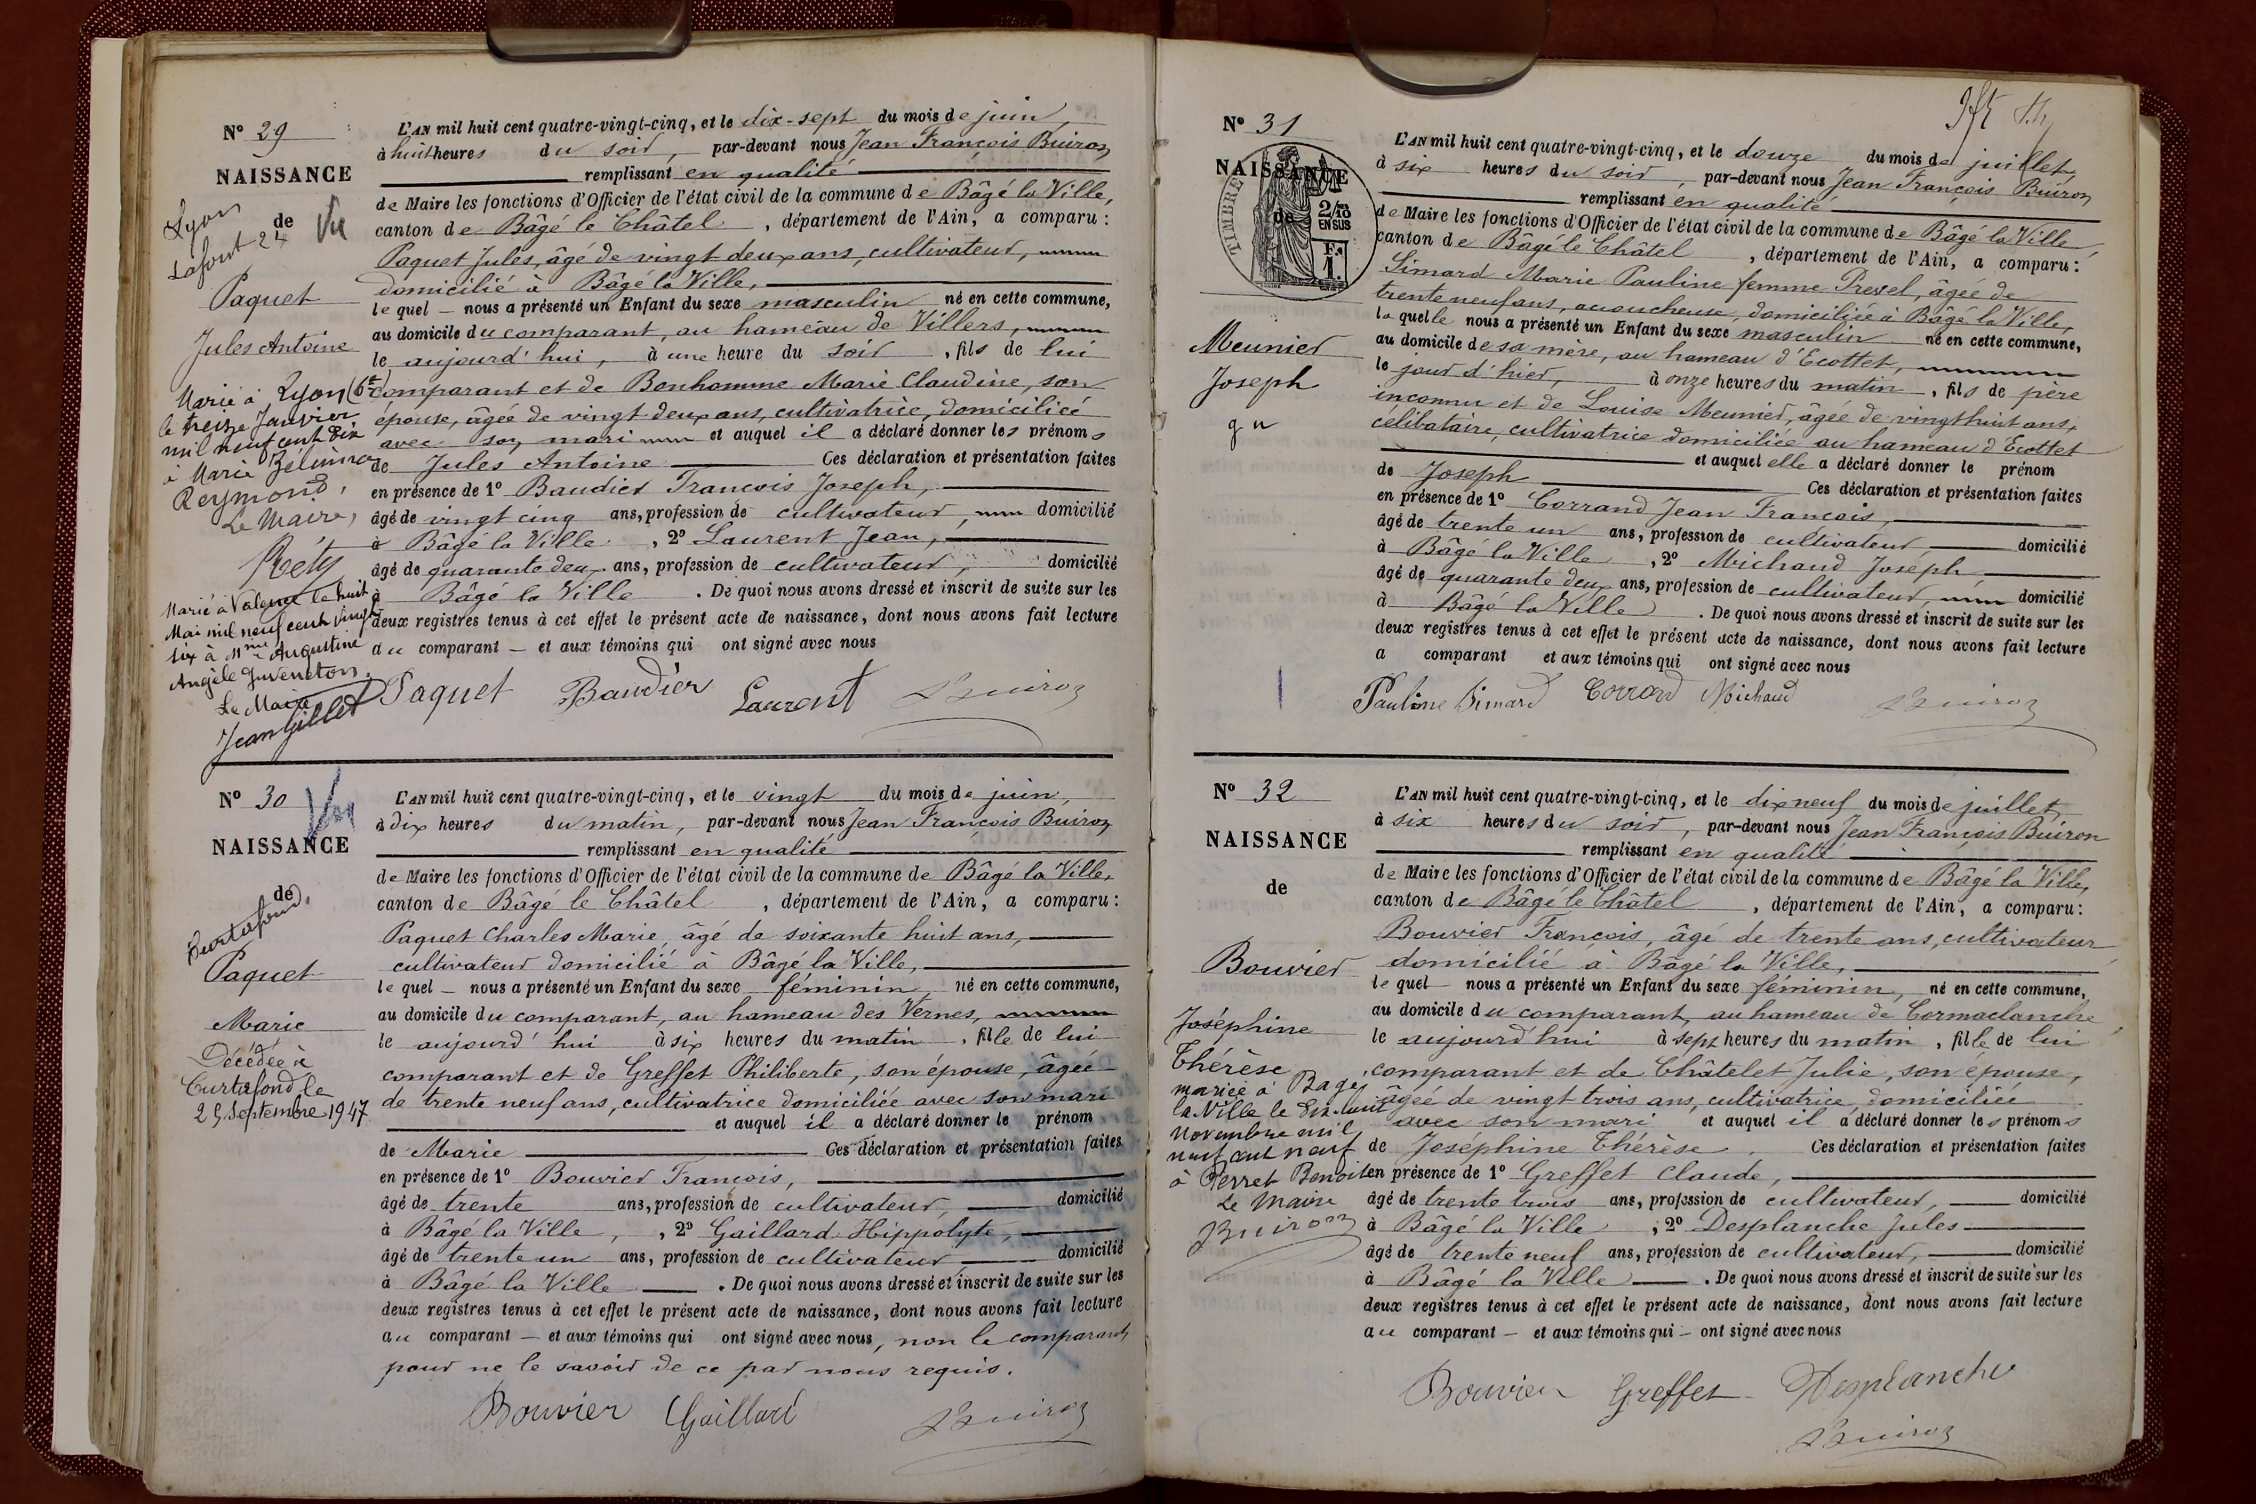 N° 29
NAISSANCE
de
Vu
Lyon
Lafont 24
Paquet
Jules Antoine
Marié à Lyon (6e)
le treize Janvier
mil neuf cent dix
à Marie
Reymond,
Le Maire,
Marié à Valence le huit
Mai mil neuf cent vingt
six à Mme Augustine
Angèle Juveneton.
Le Maire
Jean Gillet
L'AN mil huit cent quatre-vingt-cinq, et le dix-sept du mois de juin,
à huit heures du soir, par-devant nous Jean François Buiron
remplissant en qualité
de Maire les fonctions d'Officier de l'état civil de la commune de Bâgé la Ville,
canton de Bâgé le Châtel, département de l'Ain, a comparu:
Paquet Jules, âgé de vingt deux ans, cultivateur,
domicilié à Bâgé la Ville,
lequel nous a présenté un Enfant du sexe masculin né en cette commune,
au domicile du comparant, au hameau de Villers,
le aujourd'hui, à une heure du soir, fils de lui
comparant et de Bonhomme Marie Claudine, son
épouse, âgée de vingt deux ans, cultivatrice, domiciliée
avec son mari et auquel il a déclaré donner les prénoms
de Jules Antoine Ces déclaration et présentation faites
en présence de 1° Baudier François Joseph,
âgé de vingt cinq ans, profession de cultivateur, domicilié
à Bâgé la Ville, 2° Laurent Jean,
âgé de quarante deux ans, profession de cultivateur, domicilié
à Bâgé la Ville. De quoi nous avons dressé et inscrit de suite sur les
deux registres tenus à cet effet le présent acte de naissance, dont nous avons fait lecture
au comparant — et aux témoins qui ont signé avec nous
Paquet Baudier Laurent Buiron
N° 30
Vu
NAISSANCE
de
Curtafond,
Paquet
Marie
Décédée à
Curtafond le
25 Septembre 1947
L'AN mil huit cent quatre-vingt-cinq, et le vingt du mois de juin,
à dix heures du matin, par-devant nous Jean François Buiron
remplissant en qualité
de Maire les fonctions d'Officier de l'état civil de la commune de Bâgé la Ville,
canton de Bâgé le Châtel, département de l'Ain, a comparu:
Paquet Charles Marie, âgé de soixante huit ans,
cultivateur domicilié à Bâgé la Ville,
lequel — nous a présenté un Enfant du sexe féminin né en cette commune,
au domicile du comparant, au hameau des Vernes,
le aujourd'hui à six heures du matin, fille de lui
comparant et de Greffet Philiberte, son épouse, âgée
de trente neuf ans, cultivatrice domiciliée avec son mari
et auquel il a déclaré donner le prénom
de Marie Ces déclaration et présentation faites
en présence de 1° Bouvier François,
âgé de trente ans, profession de cultivateur, domicilié
à Bâgé la Ville, 2° Gaillard Hippolyte,
âgé de trente un ans, profession de cultivateur domicilié
à Bâgé la Ville. De quoi nous avons dressé et inscrit de suite sur les
deux registres tenus à cet effet le présent acte de naissance, dont nous avons fait lecture
au comparant — et aux témoins qui ont signé avec nous, non le comparant
pour ne le savoir de ce par nous requis.
Bouvier Gaillard Buiron
N° 31
NAISSANCE
de
TIMBRE
2/10
EN SUS
Meunier
Joseph
L'AN mil huit cent quatre-vingt-cinq, et le douze du mois de juillet,
à six heures du soir, par-devant nous Jean François Buiron
remplissant en qualité
de Maire les fonctions d'Officier de l'état civil de la commune de Bâgé la Ville,
canton de Bâgé le Châtel, département de l'Ain, a comparu:
Simard Marie Pauline femme Prevel, âgée de
trente neuf ans, accoucheuse, domiciliée à Bâgé la Ville,
laquelle nous a présenté un Enfant du sexe masculin né en cette commune,
au domicile de sa mère, au hameau d'Ecottet,
le jour d'hier, à onze heures du matin, fils de père
inconnu et de Louise Meunier, âgée de vingt huit ans,
célibataire, cultivatrice domiciliée au hameau d'Ecottet
et auquel elle a déclaré donner le prénom
de Joseph Ces déclaration et présentation faites
en présence de 1° Corrand Jean François,
âgé de trente un ans, profession de cultivateur, domicilié
à Bâgé la Ville, 2° Michaud Joseph,
âgé de quarante deux ans, profession de cultivateur, domicilié
à Bâgé la Ville. De quoi nous avons dressé et inscrit de suite sur les
deux registres tenus à cet effet le présent acte de naissance, dont nous avons fait lecture
a comparant et aux témoins qui ont signé avec nous
Pauline Simard Corrand Michaud Buiron
N° 32
NAISSANCE
de
Bouvier
Joséphine
Thérèse
mariée à Bagé
la Ville le dix huit
novembre mil
neuf cent neuf
à Perret Benoit
Le Maire
Buiron
L'AN mil huit cent quatre-vingt-cinq, et le dix neuf du mois de juillet,
à six heures du soir, par-devant nous Jean François Buiron
remplissant en qualité
de Maire les fonctions d'Officier de l'état civil de la commune de Bâgé la Ville,
canton de Bâgé le Châtel, département de l'Ain, a comparu:
Bouvier François, âgé de trente ans, cultivateur
domicilié à Bâgé la Ville,
lequel — nous a présenté un Enfant du sexe féminin, né en cette commune,
au domicile du comparant, au hameau de Cormaclanche
le aujourd'hui à sept heures du matin, fille de lui
comparant et de Châtelet Julie, son épouse,
âgée de vingt trois ans, cultivatrice, domiciliée
avec son mari et auquel il a déclaré donner les prénoms
de Joséphine Thérèse. Ces déclaration et présentation faites
en présence de 1° Greffet Claude,
âgé de trente trois ans, profession de cultivateur, domicilié
à Bâgé la Ville, 2° Desplanche Jules
âgé de trente neuf ans, profession de cultivateur, domicilié
à Bâgé la Ville. De quoi nous avons dressé et inscrit de suite sur les
deux registres tenus à cet effet le présent acte de naissance, dont nous avons fait lecture
au comparant — et aux témoins qui — ont signé avec nous
Bouvier Greffet Desplanche
Buiron